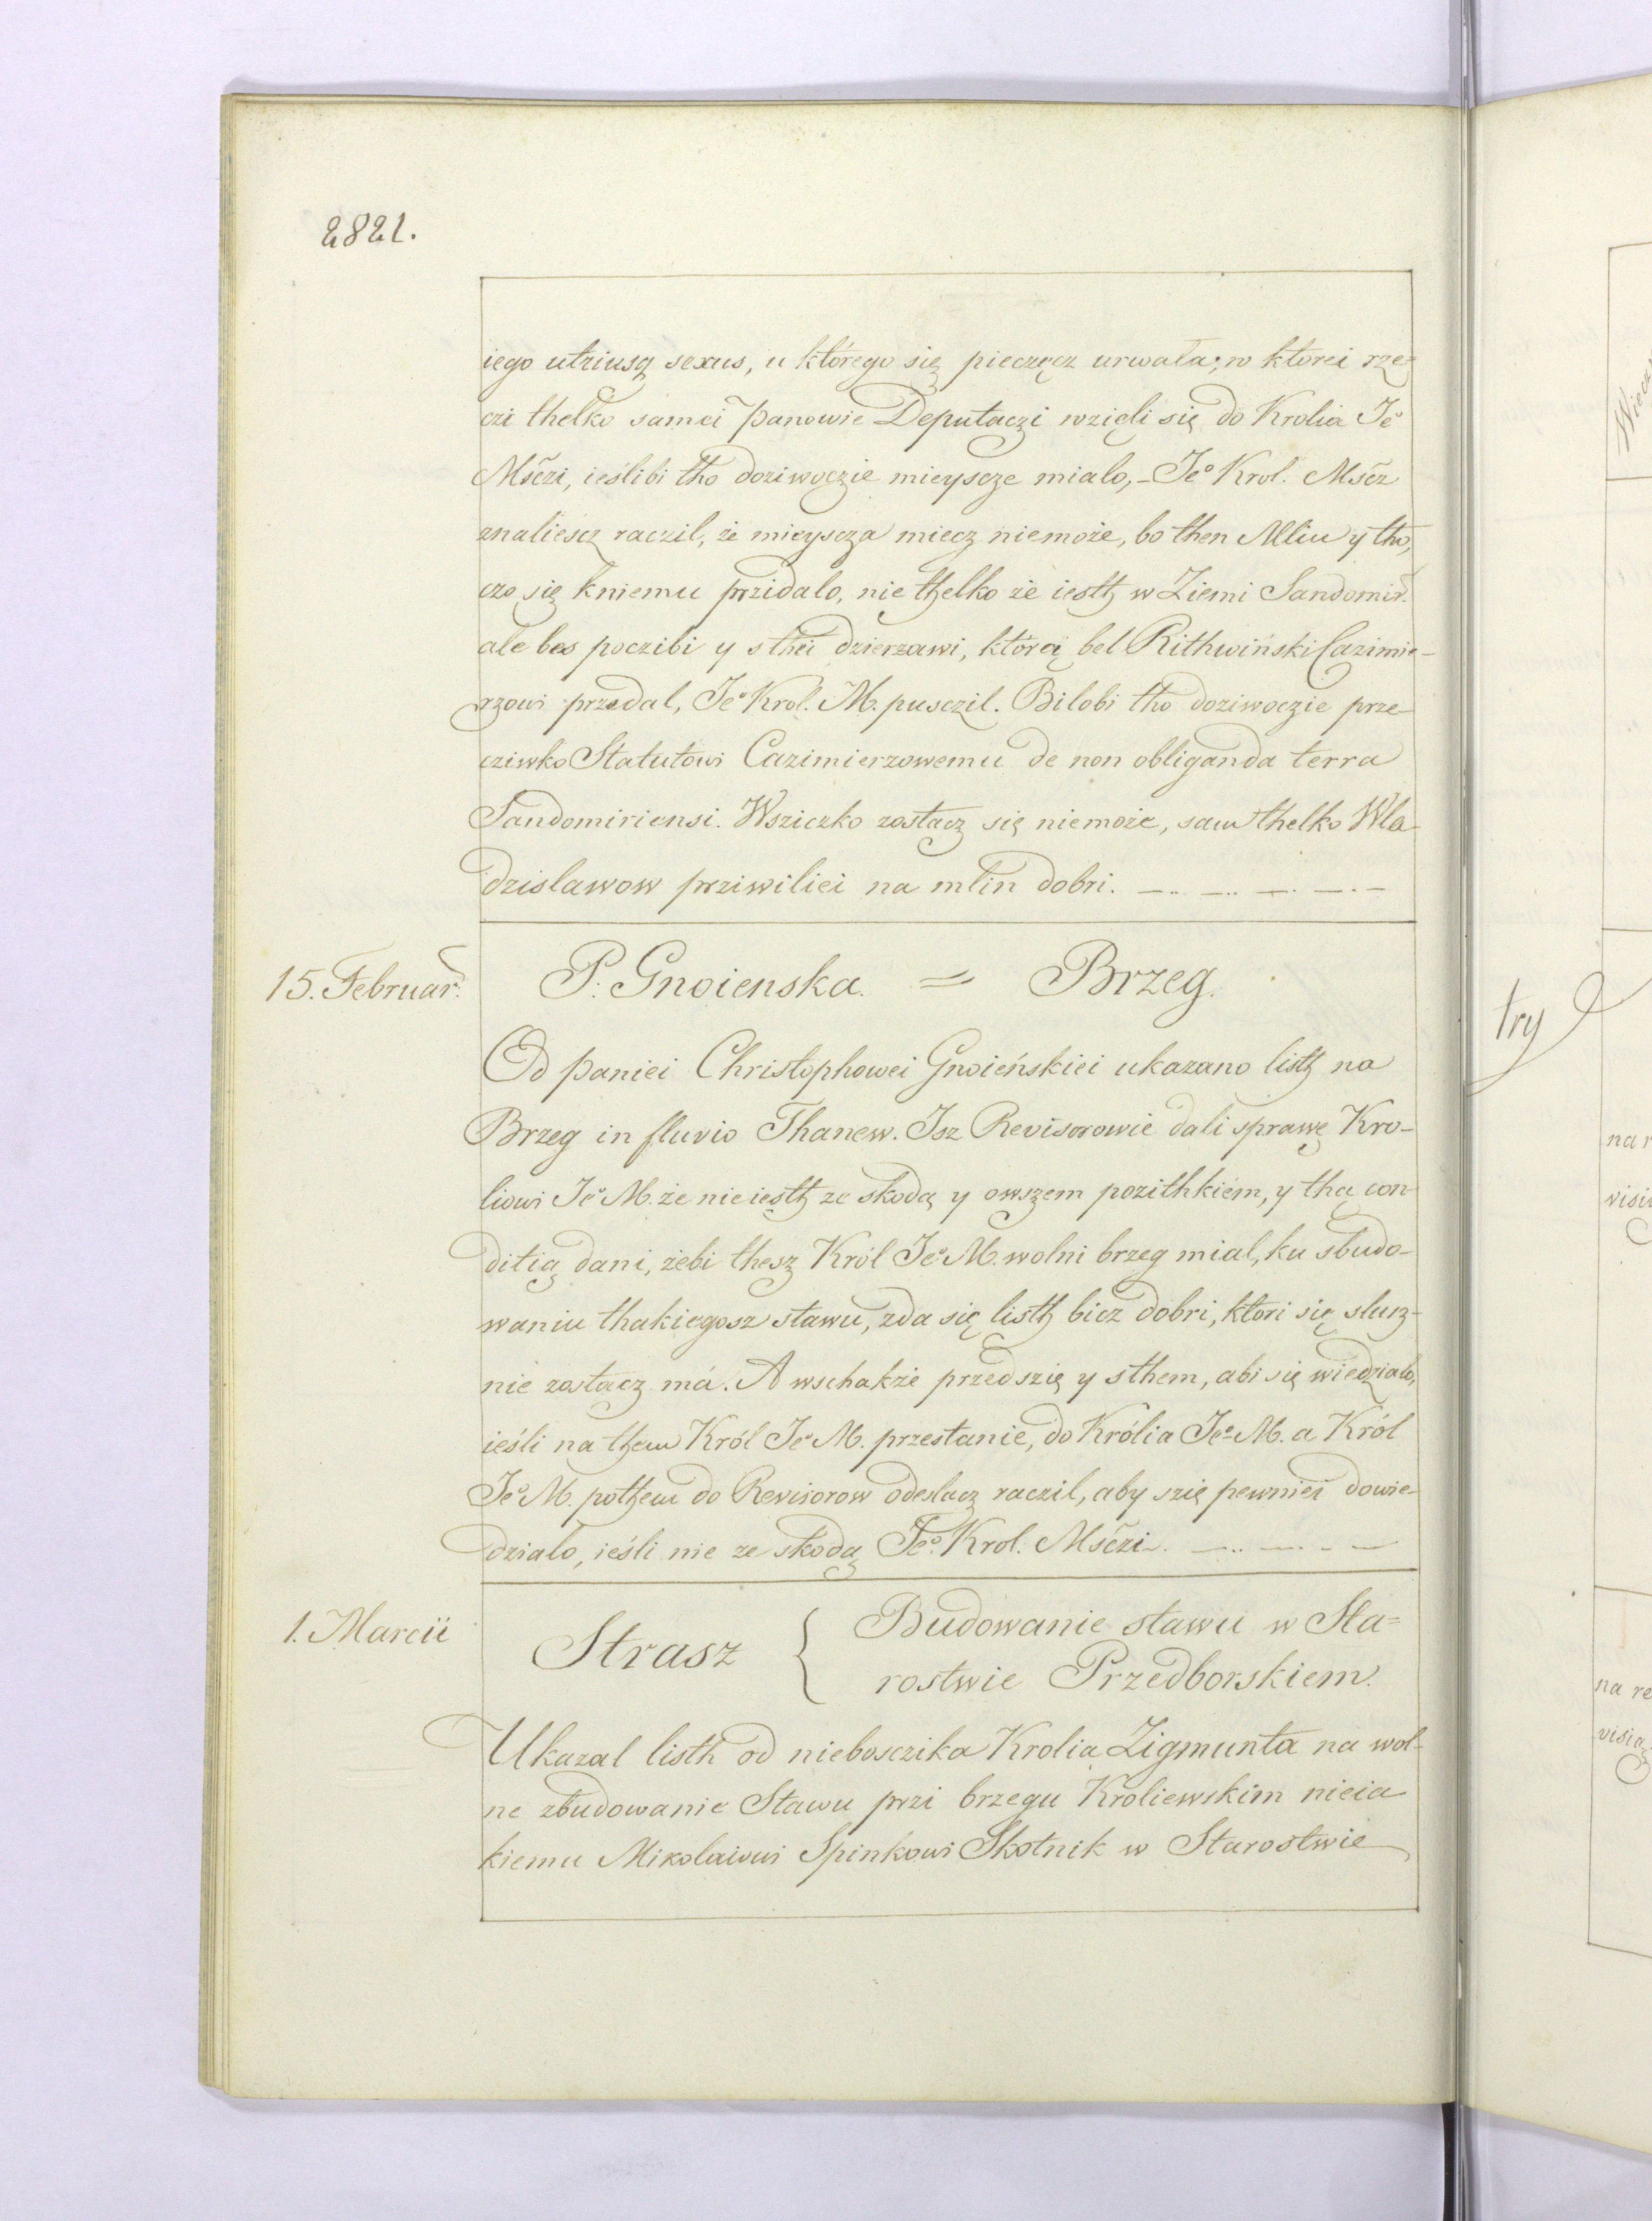 2821.
iego utriusq sexus, u którego się pieczęcz urwała; w ktorei rze=
czi thelko samei panowie Deputaczi wzięli się do Krolia Je°
Mśczi, ieślibi tho doziwoczie mieyscze mialo,– Je° Krol. Mścz
znaliescz raczil, że mieyscza miecz niemoże, bo then Mlin y tho,
czo się kniemu przidalo, nie thelko że iesth w Ziemi Sandomir.
ale bes poczibi y sthei dzierzawi, którą bel Rithwiński Cazimie-
rzowi przedal, Je° Krol. M. pusczil. Bilobi tho doziwoczie prze-
cziwko Statutowi Cazimierzowemu de non obliganda terra
Sandomiriensi. Wsziczko zostacz się niemoże, sam thelko Wla-
dzislawow prziwiliei na mlin dobri. —.. —.. —. —.—
15. Februar.
P. Gnoienska. = Brzeg.
Od paniei Christophowei Gnoieńskiei ukazano listh na
Brzeg in fluvio Thanew. Isz Revisorowie dali sprawę Kro-
liowi Je° M. że nie iesth ze skodą y owszem pozithkiem, y thą con-
ditią dani, żebi thesz Król Je° M. wolni brzeg mial, ku sbudo-
waniu thakiegosz stawu, zda się listh bicz dobri, ktori się slusz-
nie zostacz má. A wschakże przedszię y sthem, abi się wiedzialo,
ieśli na them Król Je° M. przestanie, do Królia Je° M. a Król
Je° M. pothem do Revisorow odeslacz raczil, aby szię pewniei dowie-
dzialo, ieśli nie ze skodą Je° Krol. Mśczi. —.. —. – —
1. Marcii
Strasz { Budowanie stawu w Sta=
rostwie Przedborskiem.
Ukazal listh od niebosczika Krolia Zigmunta na wol-
ne zbudowanie Stawu przi brzegu Kroliewskim nieia
kiemu Mikolaiowi Spinkowi Skotnik w Starostwie
try
na r
na re